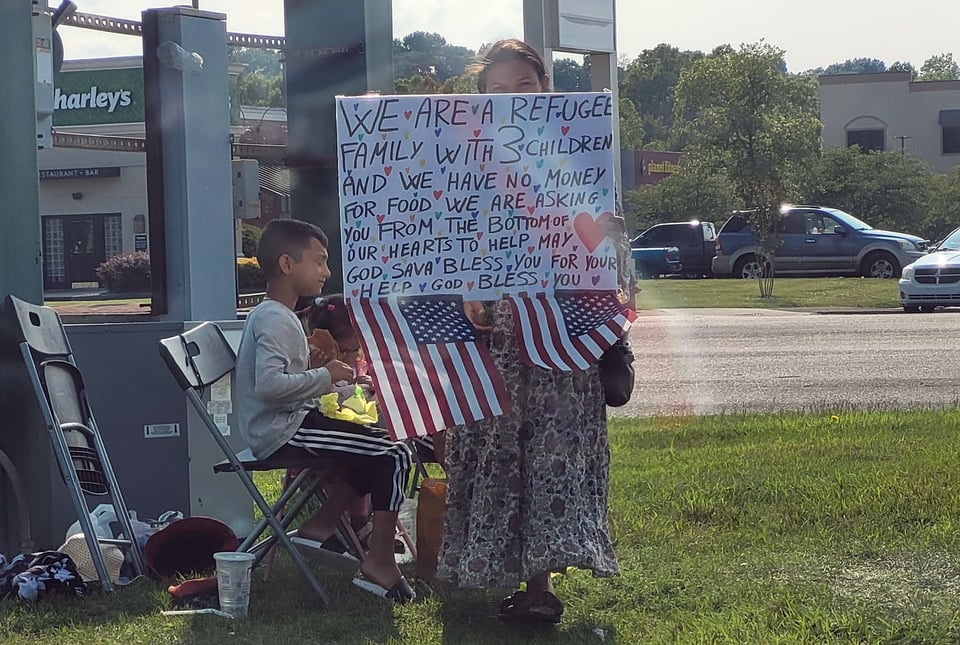 harley's
RESTAURANT • BAR
planet fitness
WE ARE A REFUGEE
FAMILY WITH 3 CHILDREN
AND WE HAVE NO MONEY
FOR FOOD WE ARE ASKING
YOU FROM THE BOTTOM OF
OUR HEARTS TO HELP MAY
GOD SAVA BLESS YOU FOR YOUR
HELP GOD BLESS YOU